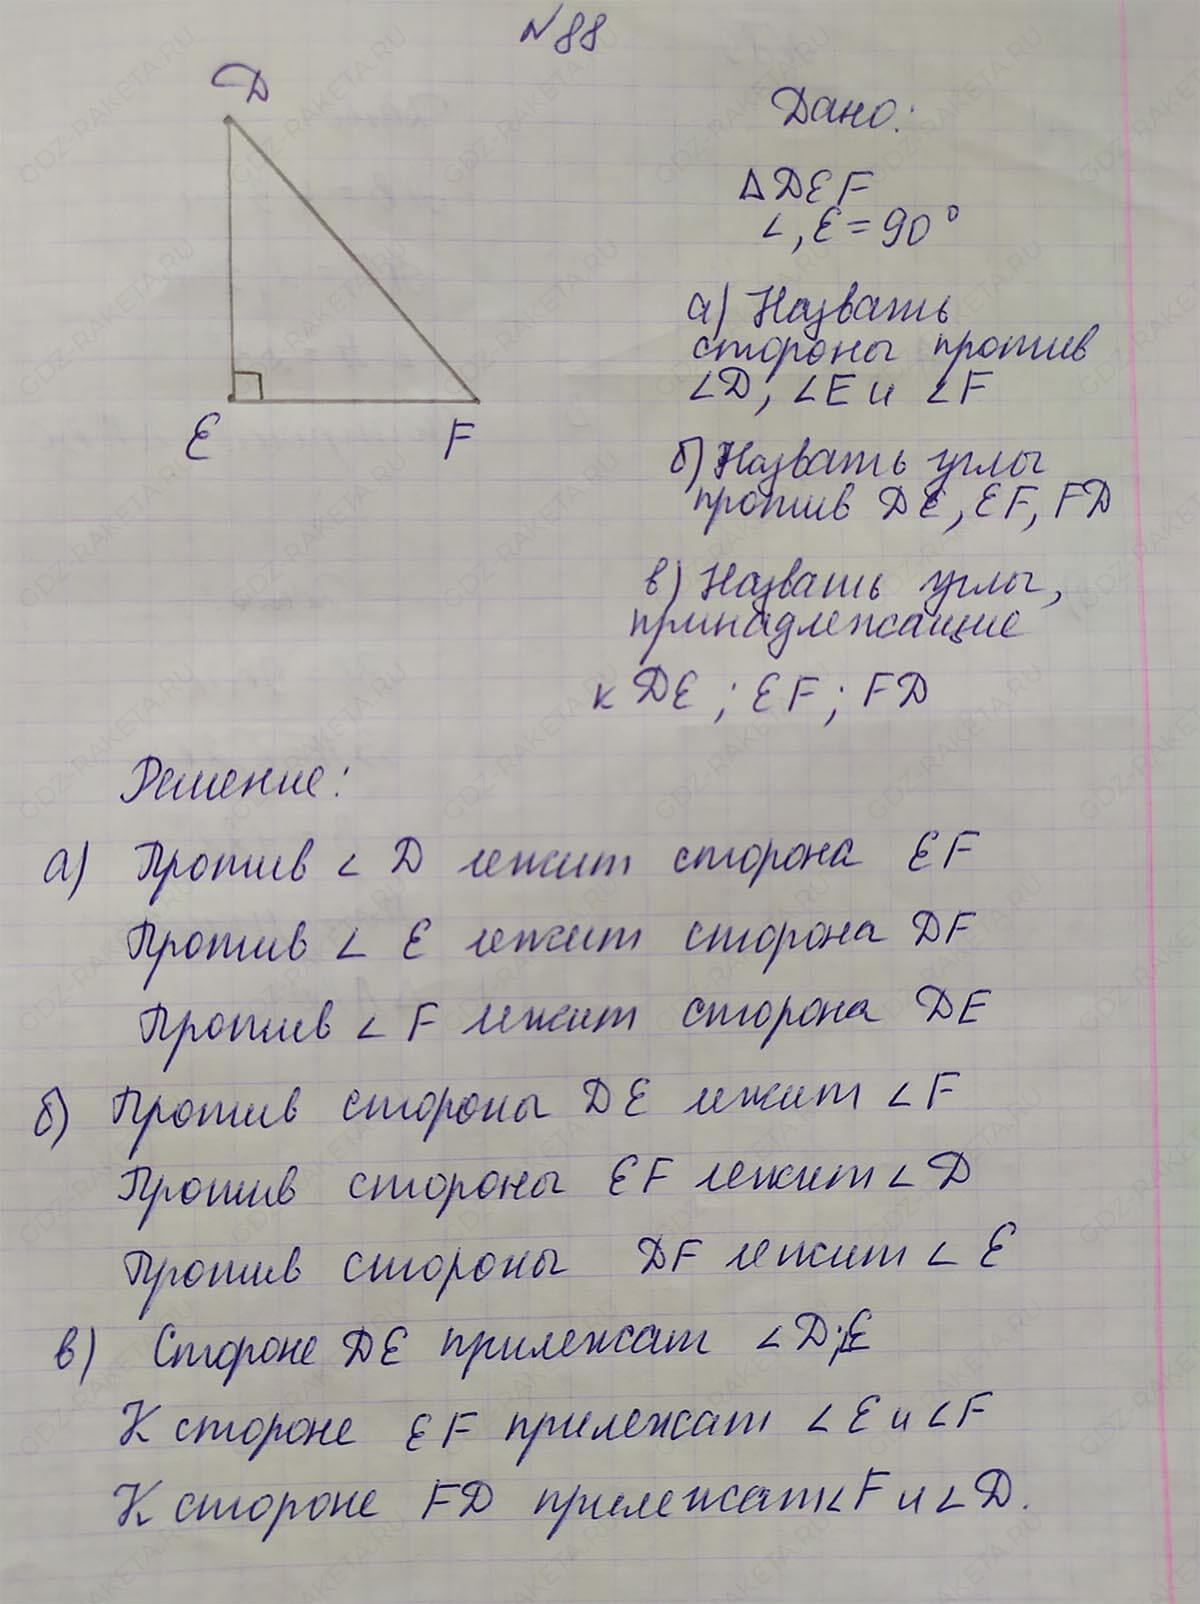 №88
D
E
F
Дано:
ΔDEF
∠, E = 90°
а) Назвать
стороны против
∠D, ∠E и ∠F
б) Назвать углы
против DE, EF, FD
в) Назвать углы,
принадлежащие
к DE ; EF ; FD
Решение:
а) Против ∠ D лежит сторона EF
Против ∠ E лежит сторона DF
Против ∠ F лежит сторона DE
б) Против стороны DE лежит ∠F
Против стороны EF лежит ∠D
Против стороны DF лежит ∠ E
в) Стороне DE прилежат ∠D; E
К стороне EF прилежат ∠E и ∠F
К стороне FD прилежат ∠F и ∠D.
GDZ-RAKETA.RU